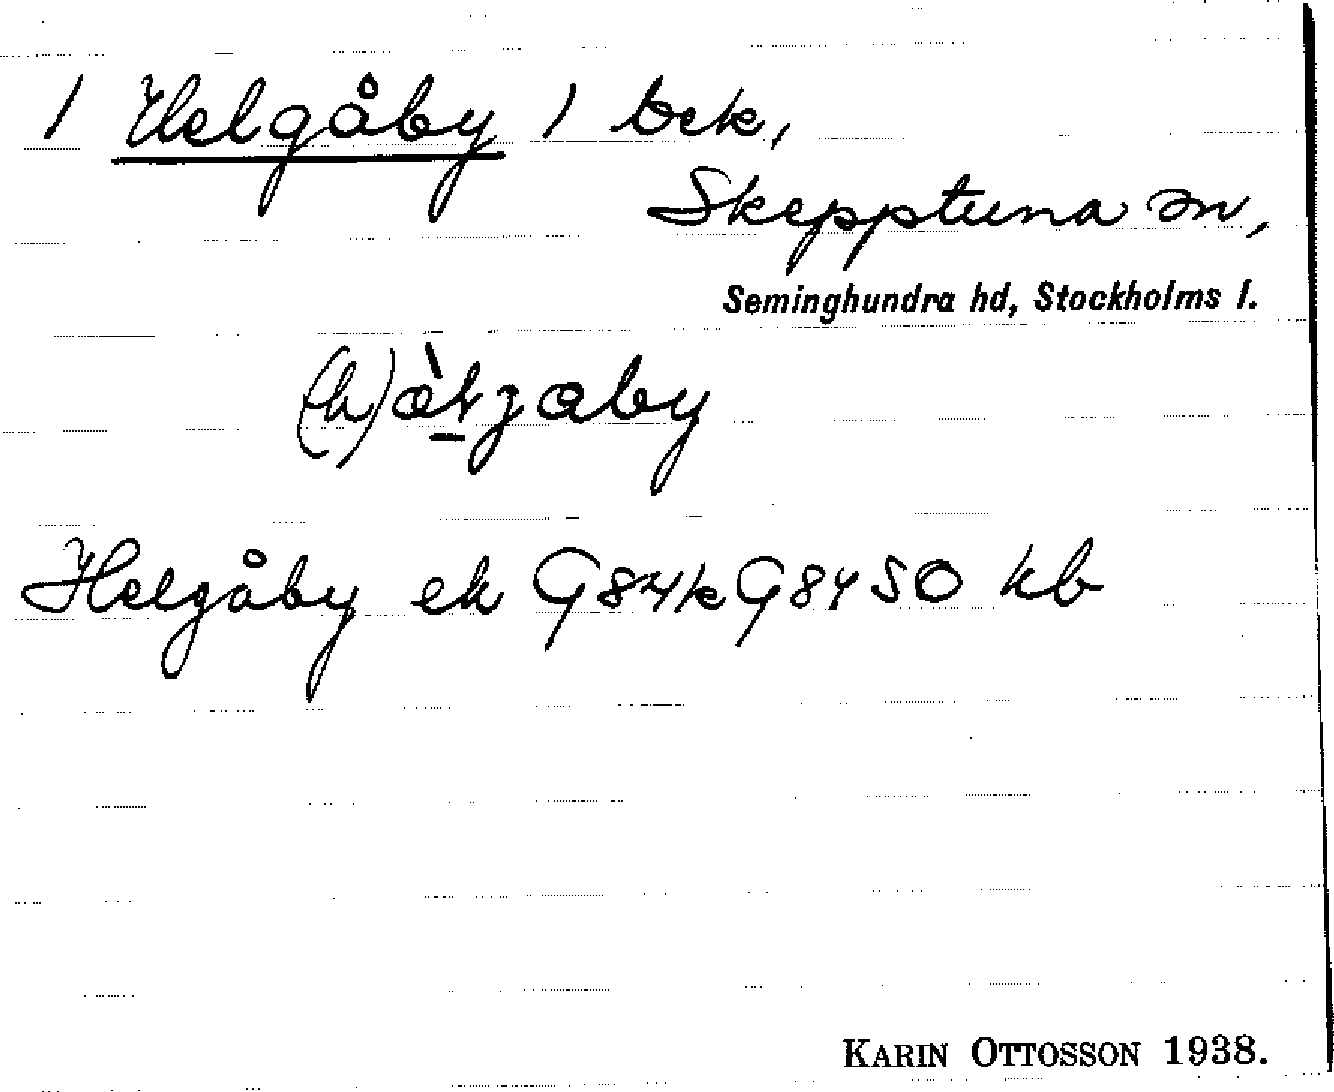 / Helgåby / bek,
Skepptuna sn,
Seminghundra hd, Stockholms l.
Helgåby ek G84k G8450 kb
KARIN OTTOSSON 1938.